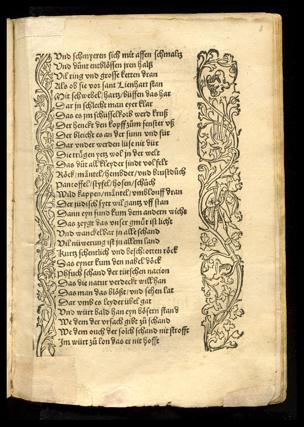 Und schmyeren sich mit affen schmaltz
Und důnt entblössen jren halß
Vil ring und grosse ketten dran
Als ob sie vor sant Lienhart stan
Mit schwebel/ hartz/ büffen das har
Dar jn schlecht man eyer klar
Das es jm schusselkorb werd kruß
Der henckt den kopff zum fenster uß
Der bleicht es an der sunn und für
Dar under werden lüse nit dür
Die trůgen yetz wol jn der welt
Das důt all kleyder sindt vol felt
Röck/ mäntel/ hembder/ und brustdůch
Pantoffel/ styfel/ hosen/ schůch
Wild kappen/ mäntel/ umblouff dran
Der jüdisch syt wil gantz uff stan
Dann eyn fund kum dem andern wicht
Das zeygt das unser gmüt ist licht
Und wanckelbar jn alle schand
Vil nüwerung ist jn allem land
Kurtz schentlich und beschrotten röck
Das eyner kum den nabel döck
Pfuch schand der tütschen nacion
Das die natur verdeckt will han
Das man das blößt/ und sehen lat
Dar umb es leyder übel gat
Und würt bald han eyn bösern stand
We dem der ursach gibt zů schand
We dem ouch der solch schand nit strofft
Im würt zů lon das er nit hofft